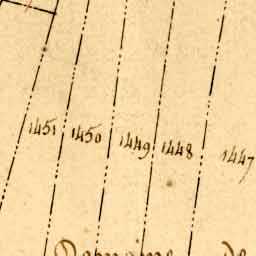 1451 1450 1449 1448 1447